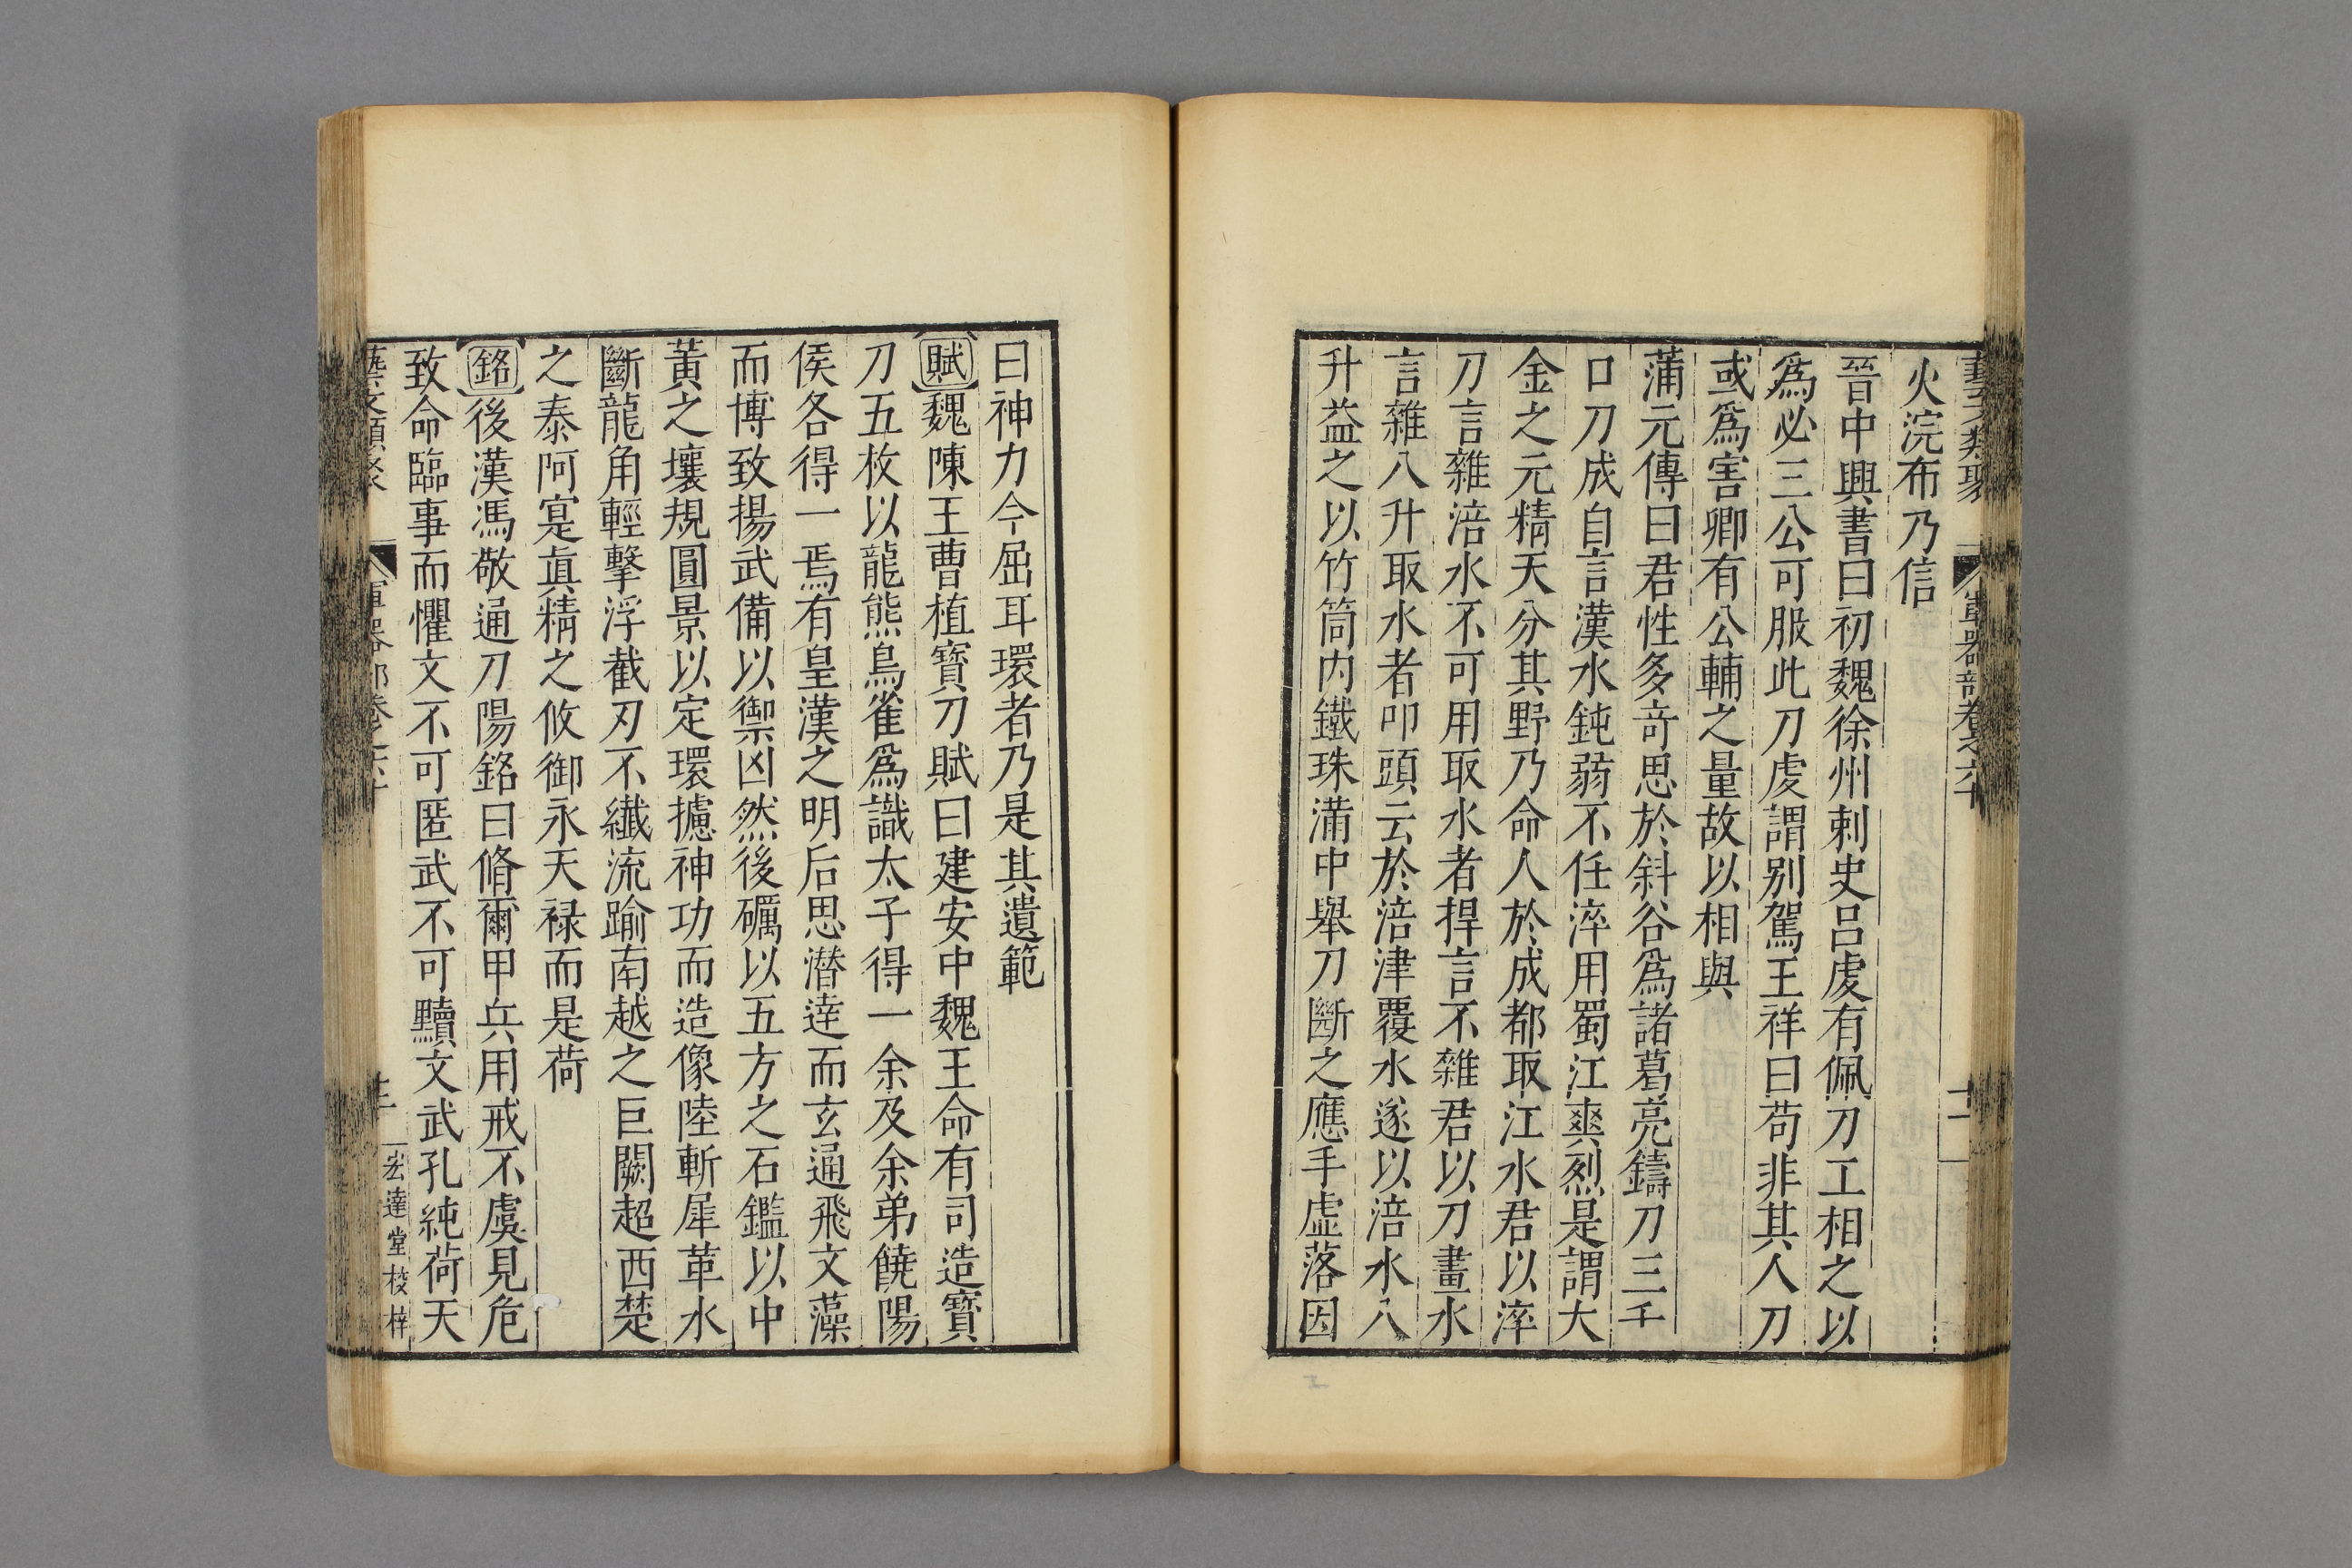 藝文類聚 軍器部卷之六十 十二
火浣布乃信
晉中興書曰初魏徐州刺史呂虔有佩刀工相之以
爲必三公可服此刀虔謂别駕王祥曰苟非其人刀
或爲害卿有公輔之量故以相與
蒲元傳曰君性多奇思於斜谷爲諸葛亮鑄刀三千
口刀成自言漢水鈍弱不任淬用蜀江爽烈是謂大
金之元精天分其野乃命人於成都取江水君以淬
刀言雜涪水不可用取水者捍言不雜君以刀畫水
言雜八升取水者叩頭云於涪津覆水遂以涪水八
升益之以竹筒内鐵珠滿中舉刀斷之應手虛落因
曰神力今屈耳環者乃是其遺範
賦魏陳王曹植寶刀賦曰建安中魏王命有司造寶
刀五枚以龍熊鳥雀爲識太子得一余及余弟饒陽
侯各得一焉有皇漢之明后思潛達而玄通飛文藻
而博致揚武備以禦凶然後礪以五方之石鑑以中
黃之壤規圓景以定環攄神功而造像陸斬犀革水
斷龍角輕擊浮截刃不纖流踰南越之巨闕超西楚
之泰阿寔眞精之攸御永天祿而是荷
銘後漢馮敬通刀陽銘曰脩爾甲兵用戒不虞見危
致命臨事而懼文不可匿武不可黷文武孔純荷天
藝文類聚 軍器部卷之六十 十三 宏達堂校梓